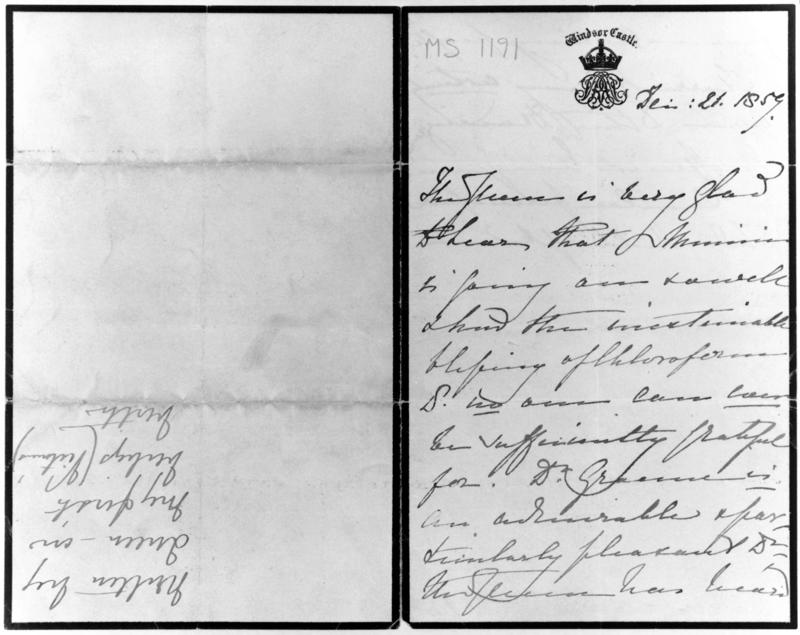 MS 1191
Windsor Castle.
Dec: 21. 1859.
The Queen is very glad
to hear that Minnie
is going on so well
& had the inestimable
blessing of Chloroform
no one can ever
be sufficiently grateful
for. Dr. Greeme is
an admirable & par
ticularly pleasant Dr
The Queen has heard
Written by
Queen - in
my first
birth